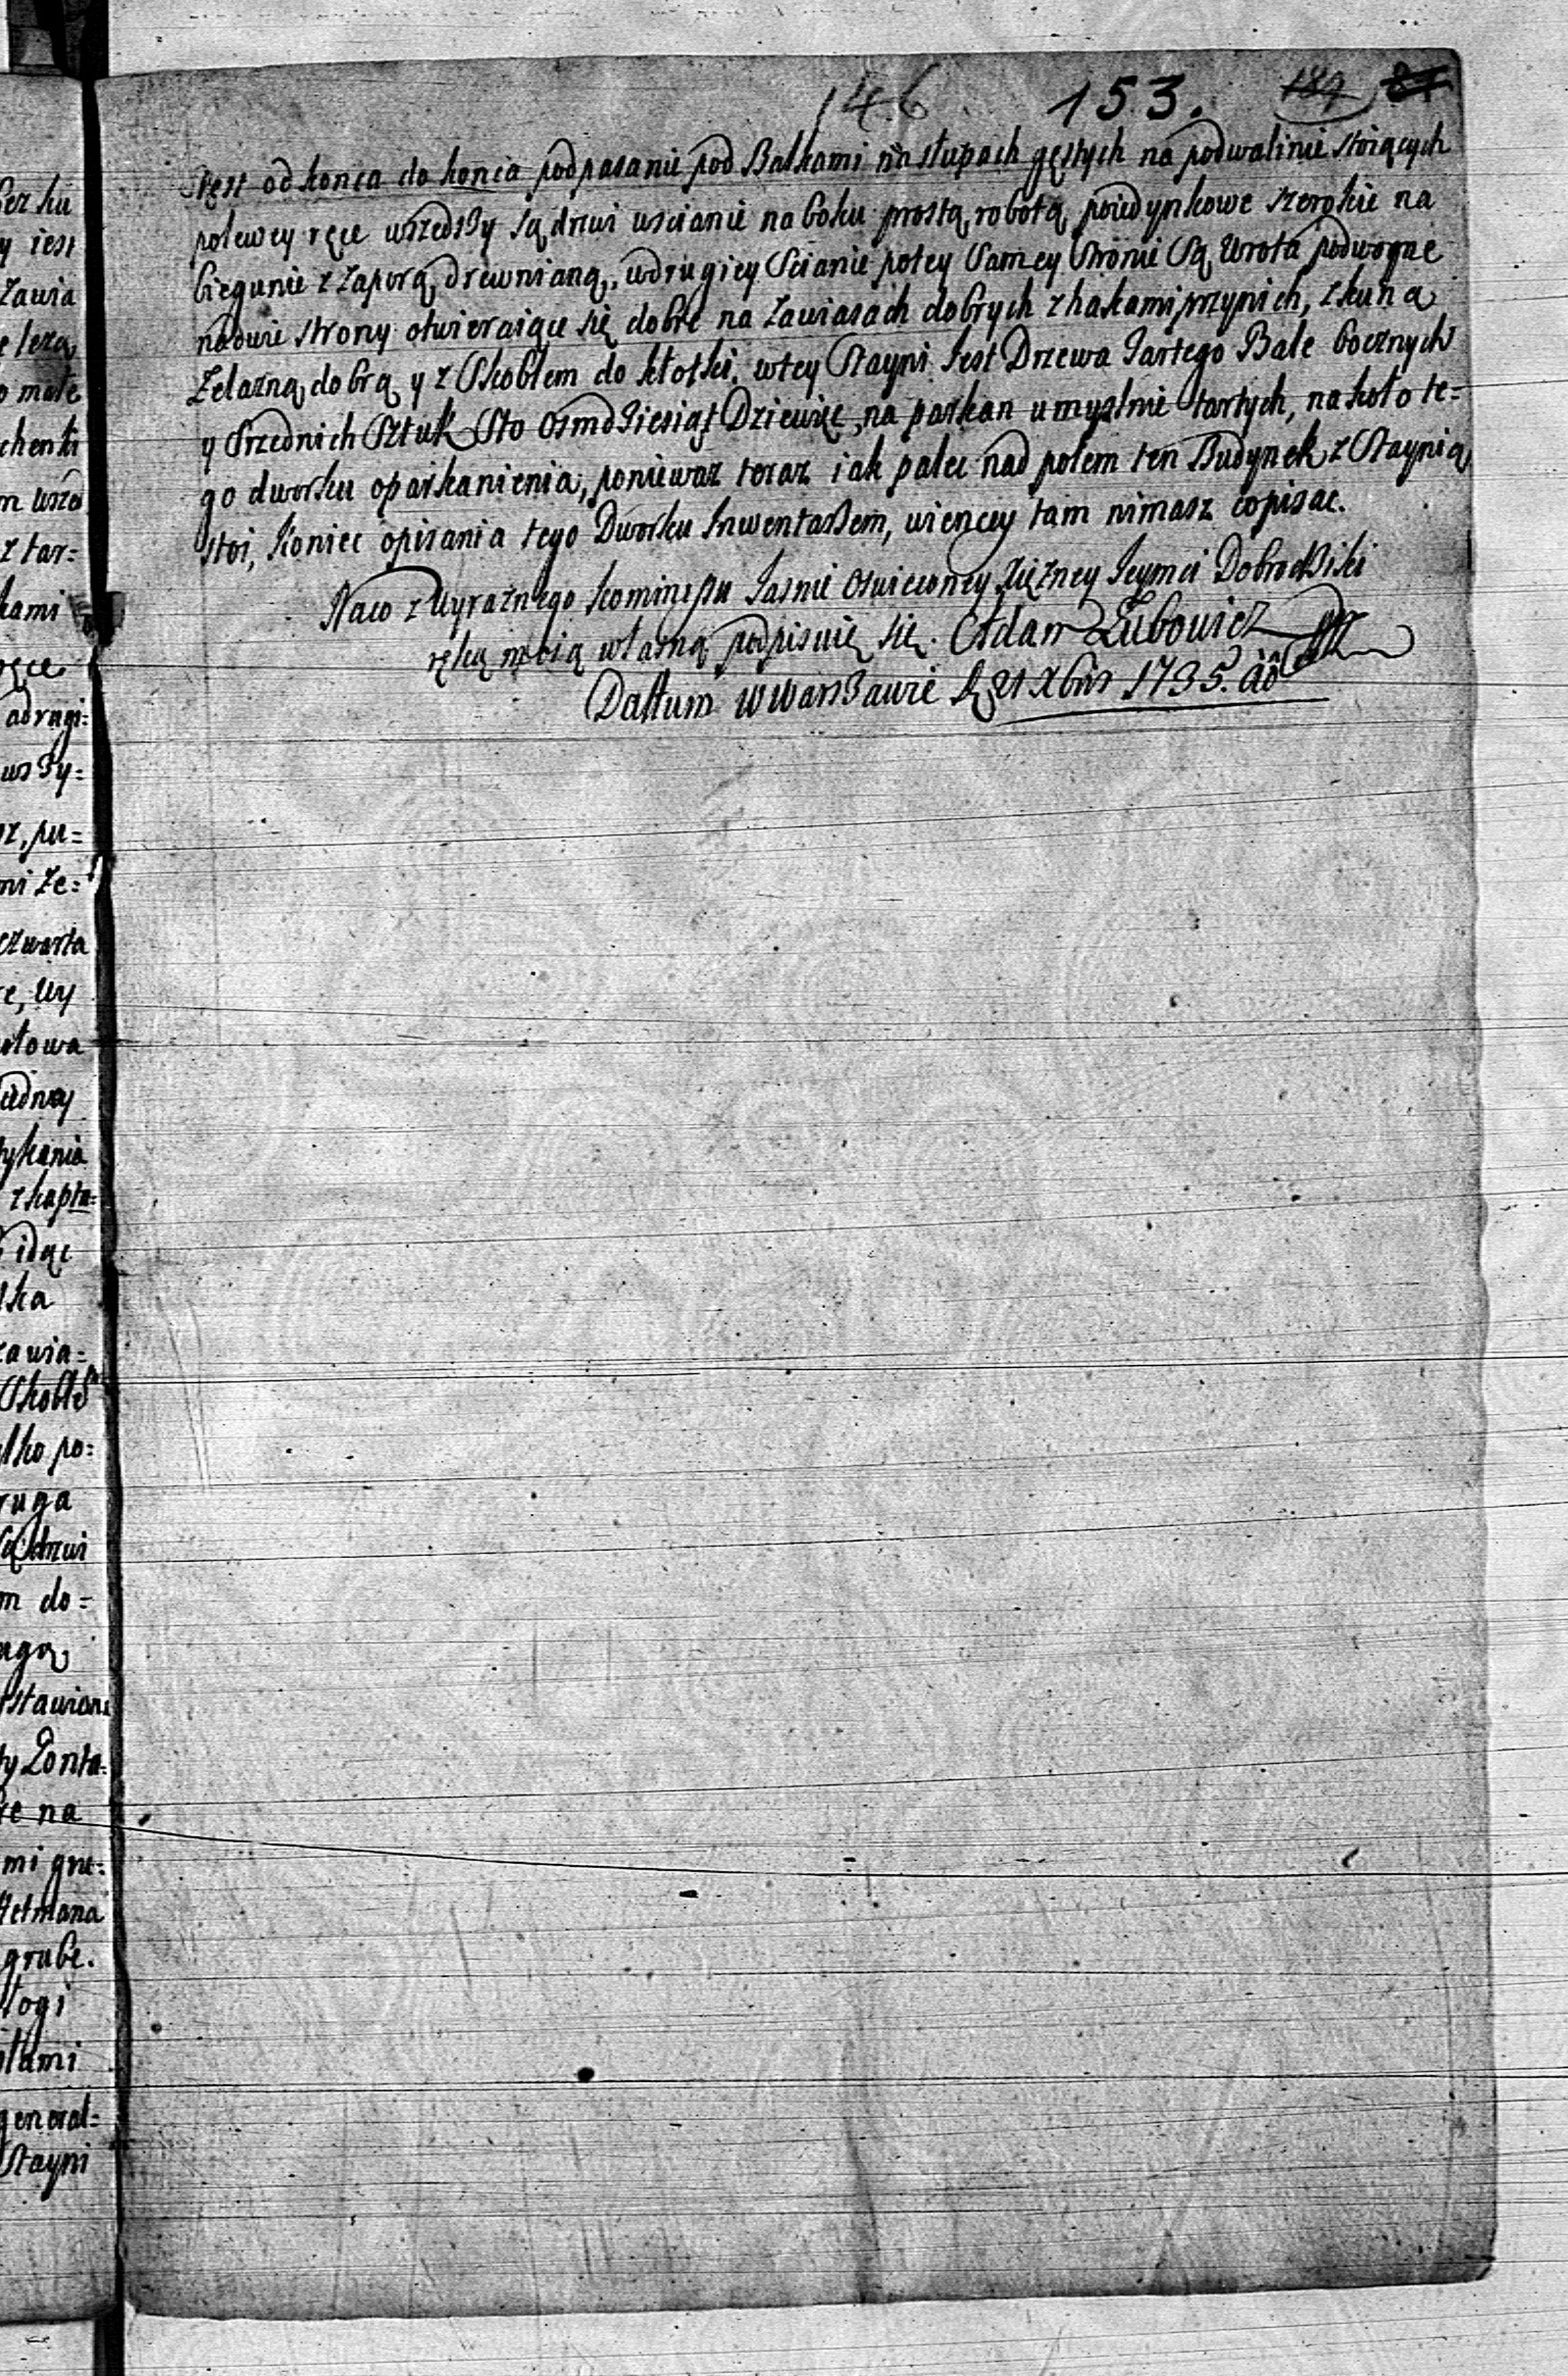 146 153. 189 81
Jest od konca do konca podpasanie pod Balkami na słupach gęstych na podwalinie stoiących
polewey ręce wszedszy są drzwi wscianie na boku prostą robotą poiedynkowe szerokie na
biegunie z zaporą drewnianą, wdrugiey Scianie potey Samey Stronie Są Wrota podwoyne
nadwie strony otwieraiące się dobre na zawiasach dobrych z hakami przynich, z kuną
Zelazną dobrą y z Skoblem do kłotki. wtey Stayni Jest Drzewa Tartego Bale bocznych
y Srzednich Sztuk Sto Osmdziesiąt Dziewięc, na parkan umyslnie tartych, nakoło te=
go dworku oparkanienia, poniewaz teraz iak palec nad polem ten Budynek z Staynią
stoi, Koniec opisania tego Dworku Inwentaszem, wiencey tam nimasz copisac.
Naco z Wyraznego kominssu Jasnie Oswieconey Xiężney Jeymci Dobrodziki
ręką moią własną podpisuię się. Adam Zubowicz
Dattum w Warszawie d. 21 Xbris 1735. ao
ser ku
y iest
Zawia
e lezą
o małe
chenki
m wsze
z tar=
kami
ręce
adrugi=
wszy=
z, pu=
mi Ze=
czwarta
e, Wy
otowa
iedney
tykania
z kapta=
idąc
ska
zawia=
Skoble
lko po=
ruga
Są drzwi
m do=
ugą
stawion
ty Lonta=
re na
mi gru=
Hetmana
grube.
łogi
ilami
general=
Stayni